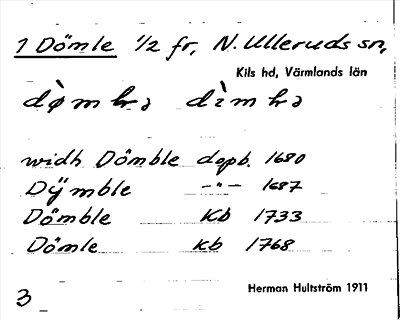 1 Dömle 1/2 fr, N. Ulleruds sn,
Kils hd, Värmlands län
widh Dömble dopb. 1680
Dÿmble -"- 1687
Dömble Kb 1733
Dömle Kb 1768
3
Herman Hultström 1911